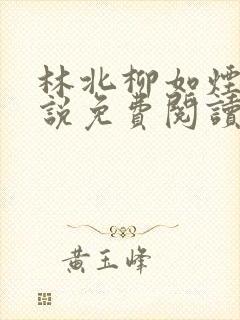 林北柳如煙
說免費閱讀
黃玉峰